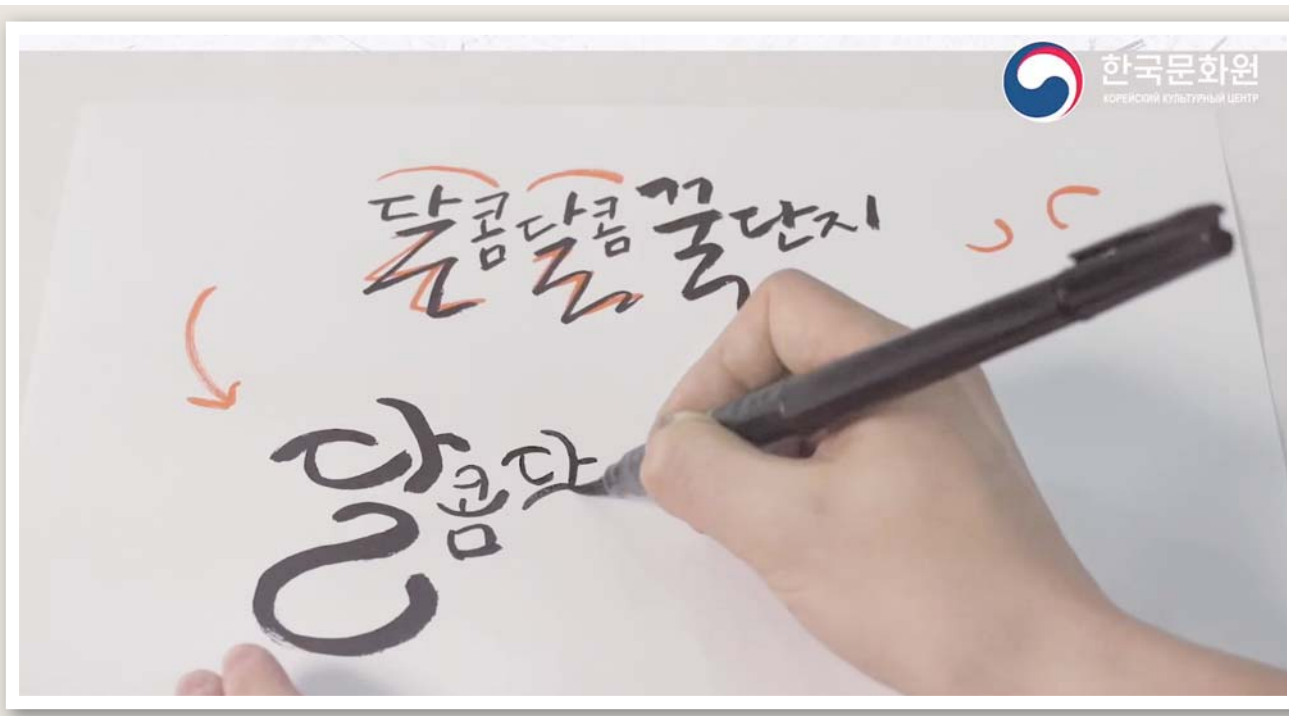 한국문화원
КОРЕЙСКИЙ КУЛЬТУРНЫЙ ЦЕНТР
달콤달콤 꿀단지
달콤다